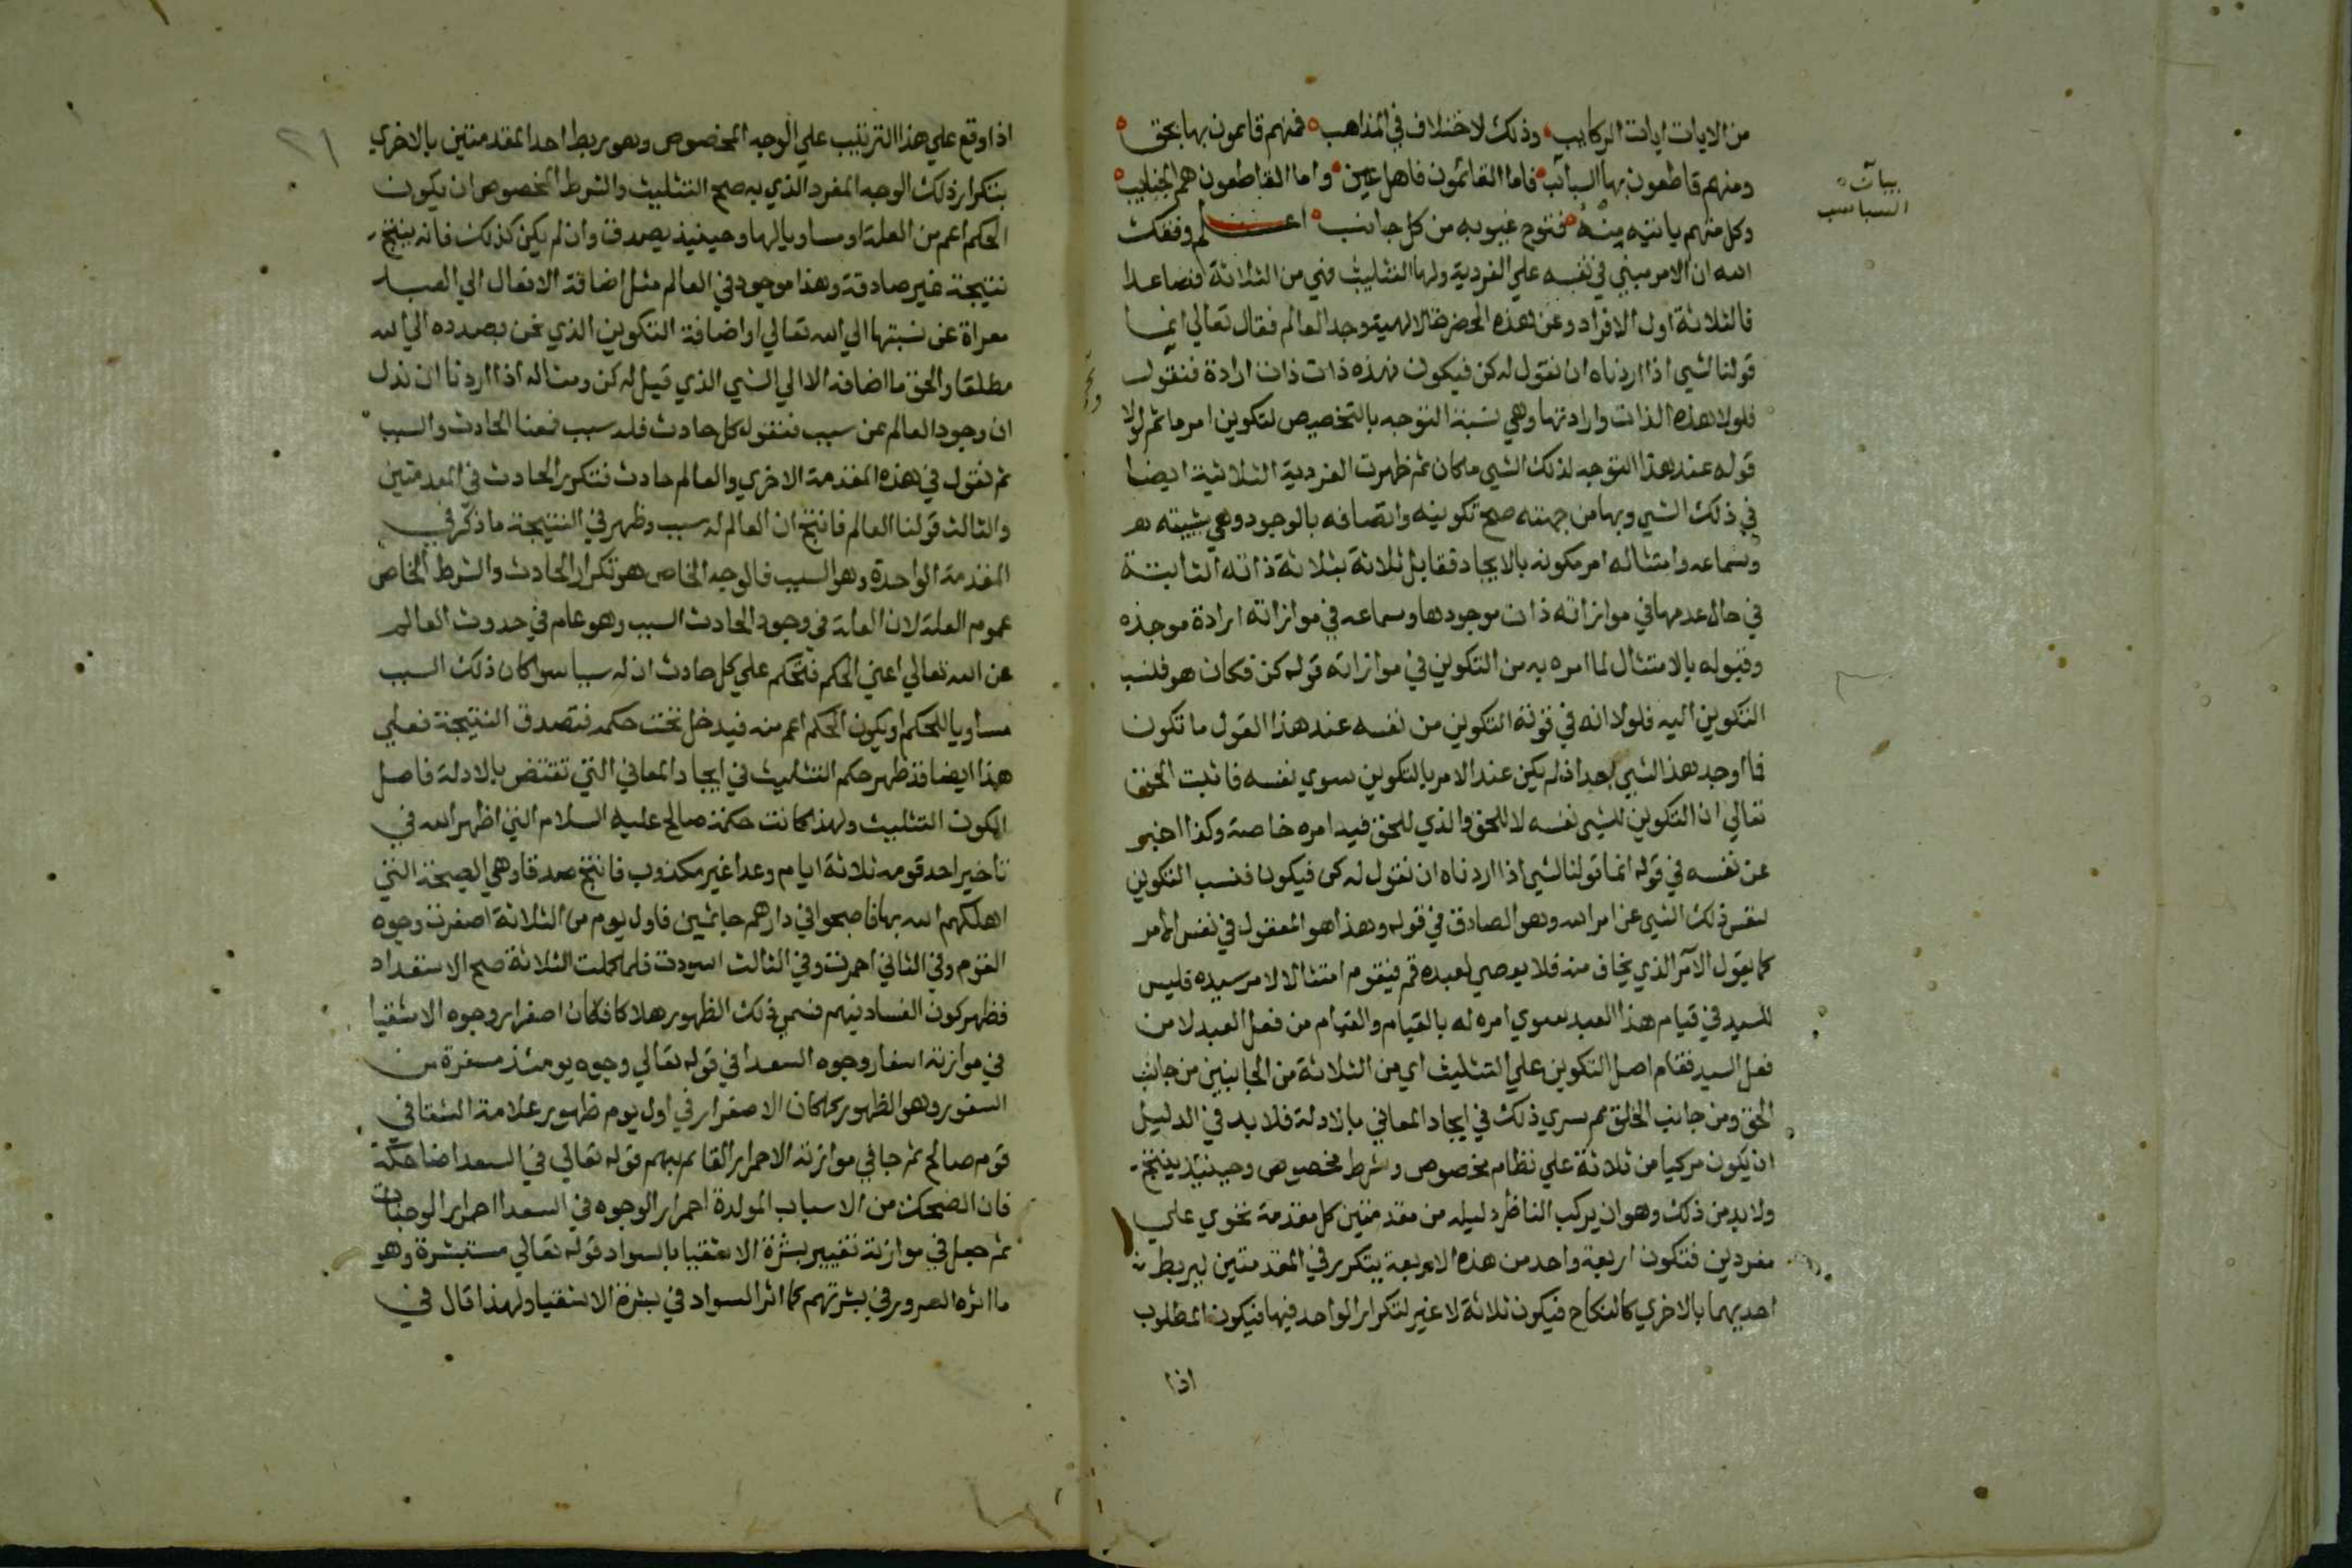 من الايات ايات الركايب وذلك لاختلاف في المذاهب فمنهم قايمون بها بحق
ومنهم قاطعون بها السباسب فاما القائمون فاهل عين واما القاطعون هم الجنايب
وكل منهم ياتيه منه فتوح غيوبه من كل جانب اعلم وفقك
الله ان الامر مبني في نفسه علي الفردية ولها التثليث فهي من الثلاثة فصاعدا
فالثلاثة اول الافراد وعن هذه الحضرة الالهية وجد العالم فقال تعالي انما
قولنا لشي اذا اردناه ان نقول له كن فيكون فهذه ذات ذات ارادة فنقول
فلولا هذه الذات وارادتها وهي نسبة التوجه بالتخصيص لتكوين امر ما ثم لولا
قوله عند هذا التوجه لذلك الشي ما كان ثم ظهرت الفردية الثلاثية ايضا
في ذلك الشي وبها من جهته صح تكوينه واتصافه بالوجود وهي شيئيته
وسماعه وامتثاله امر مكونه بالايجاد فقابل ثلاثة بثلاثة ذاته الثابتة
في حال عدمها في موازاته ذات موجودها وسماعه في موازاته ارادة موجده
وقبوله بالامتثال لما امره به من التكوين في موازاته قوله كن فكان هو فنسب
التكوين اليه فلولا انه في قوته التكوين من نفسه عند هذا القول ما تكون
فما اوجد هذا الشي بعد اذ لم يكن عند الامر بالتكوين سوي نفسه فاثبت الحق
تعالي ان التكوين للشي نفسه لا للحق والذي للحق فيه امره خاصة وكذا اخبر
عن نفسه في قوله انما قولنا لشي اذا اردناه ان نقول له كن فيكون فنسب التكوين
لنفس ذلك الشي عن امر الله وهو الصادق في قوله وهذا هو المعقول في نفس الامر
كما يقول الآمر الذي يخاف منه فلا يعصي لعبده قم فيقوم امتثالا لامر سيده فليس
للسيد في قيام هذا العبد سوي امره له بالقيام والقيام من فعل العبد لا من
فعل السيد فقام اصل التكوين علي التثليث اي من الثلاثة من الجانبين من جانب
الحق ومن جانب الخلق ثم سري ذلك في ايجاد المعاني بالادلة فلابد في الدليل
ان يكون مركبا من ثلاثة علي نظام مخصوص وشرط مخصوص وحينئذ ينتج
ولابد من ذلك وهو ان يركب الناظر دليله من مقدمتين كل مقدمة تحوي علي
مفردين فتكون اربعة واحد من هذه الاربعة يتكرر في المقدمتين ليربط
احديهما بالاخري كالنكاح فيكون ثلاثة لا غير لتكرار الواحد فيها فيكون المطلوب
اذا
السباسب
٢١
اذا وقع علي هذا الترتيب علي الوجه المخصوص وهو ربط احد المقدمتين بالاخري
بتكرار ذلك الوجه المفرد الذي به صح التثليث والشرط المخصوص ان يكون
الحكم اعم من العلة او مساويا لها وحينيذ يصدق وان لم يكن كذلك فانه ينتج
نتيجة غير صادقة وهذا موجود في العالم مثل اضافة الافعال الي العبد
معراة عن نسبتها الي الله تعالي او اضافة التكوين الذي نحن بصدده الي الله
مطلقا والحق ما اضافه الا الي الشي الذي قيل له كن ومثاله اذا اردنا ان ندل
ان وجود العالم عن سبب فنقول كل حادث فله سبب فمعنا الحادث والسبب
ثم نقول في هذه المقدمة الاخري والعالم حادث فتكرر الحادث في المقدمتين
والثالث قولنا العالم فانتج ان العالم له سبب وظهر في النتيجة ما ذكر في
المقدمة الواحدة وهو السبب فالوجه الخاص هو تكرار الحادث والشرط الخاص
عموم العلة لان العلة في وجود الحادث السبب وهو عام في حدوث العالم
عن الله تعالي اعني الحكم فنحكم علي كل حادث ان له سببا سوا كان ذلك السبب
مساويا للحكم او يكون الحكم اعم منه فيدخل تحت حكمه فتصدق النتيجة فعلي
هذا ايضا قد ظهر حكم التثليث في ايجاد المعاني التي تقتنص بالادلة فاصل
الكون التثليث ولهذا كانت حكمة صالح عليه السلام التي اظهر الله في
تاخير احد قومه ثلاثة ايام وعدا غير مكذوب فانتج صدقا وهي الصيحة التي
اهلكهم الله بها فاصبحوا في دارهم جاثمين فاول يوم من الثلاثة اصفرت وجوه
القوم وفي الثاني احمرت وفي الثالث اسودت فلما كملت الثلاثة صح الاستعداد
فظهر كون الفساد فيهم فسمي ذلك الظهور هلاكا فكان اصفرار وجوه الاشقيا
في موازنة اسفار وجوه السعدا في قوله تعالي وجوه يومئذ مسفرة من
السفور وهو الظهور كما كان الاصفرار في اول يوم ظهور علامة الشقا في
قوم صالح ثم جا في موازنة الاحمرار القايم بهم قوله تعالي في السعدا ضاحكة
فان الضحك من الاسباب المولدة احمرار الوجوه في السعدا احمرار الوجنات
ثم جعل في موازنة تغيير بشرة الاشقيا بالسواد قوله تعالي مستبشرة وهو
ما اثره السرور في بشرتهم كما اثر السواد في بشرة الاشقيا ولهذا قال في